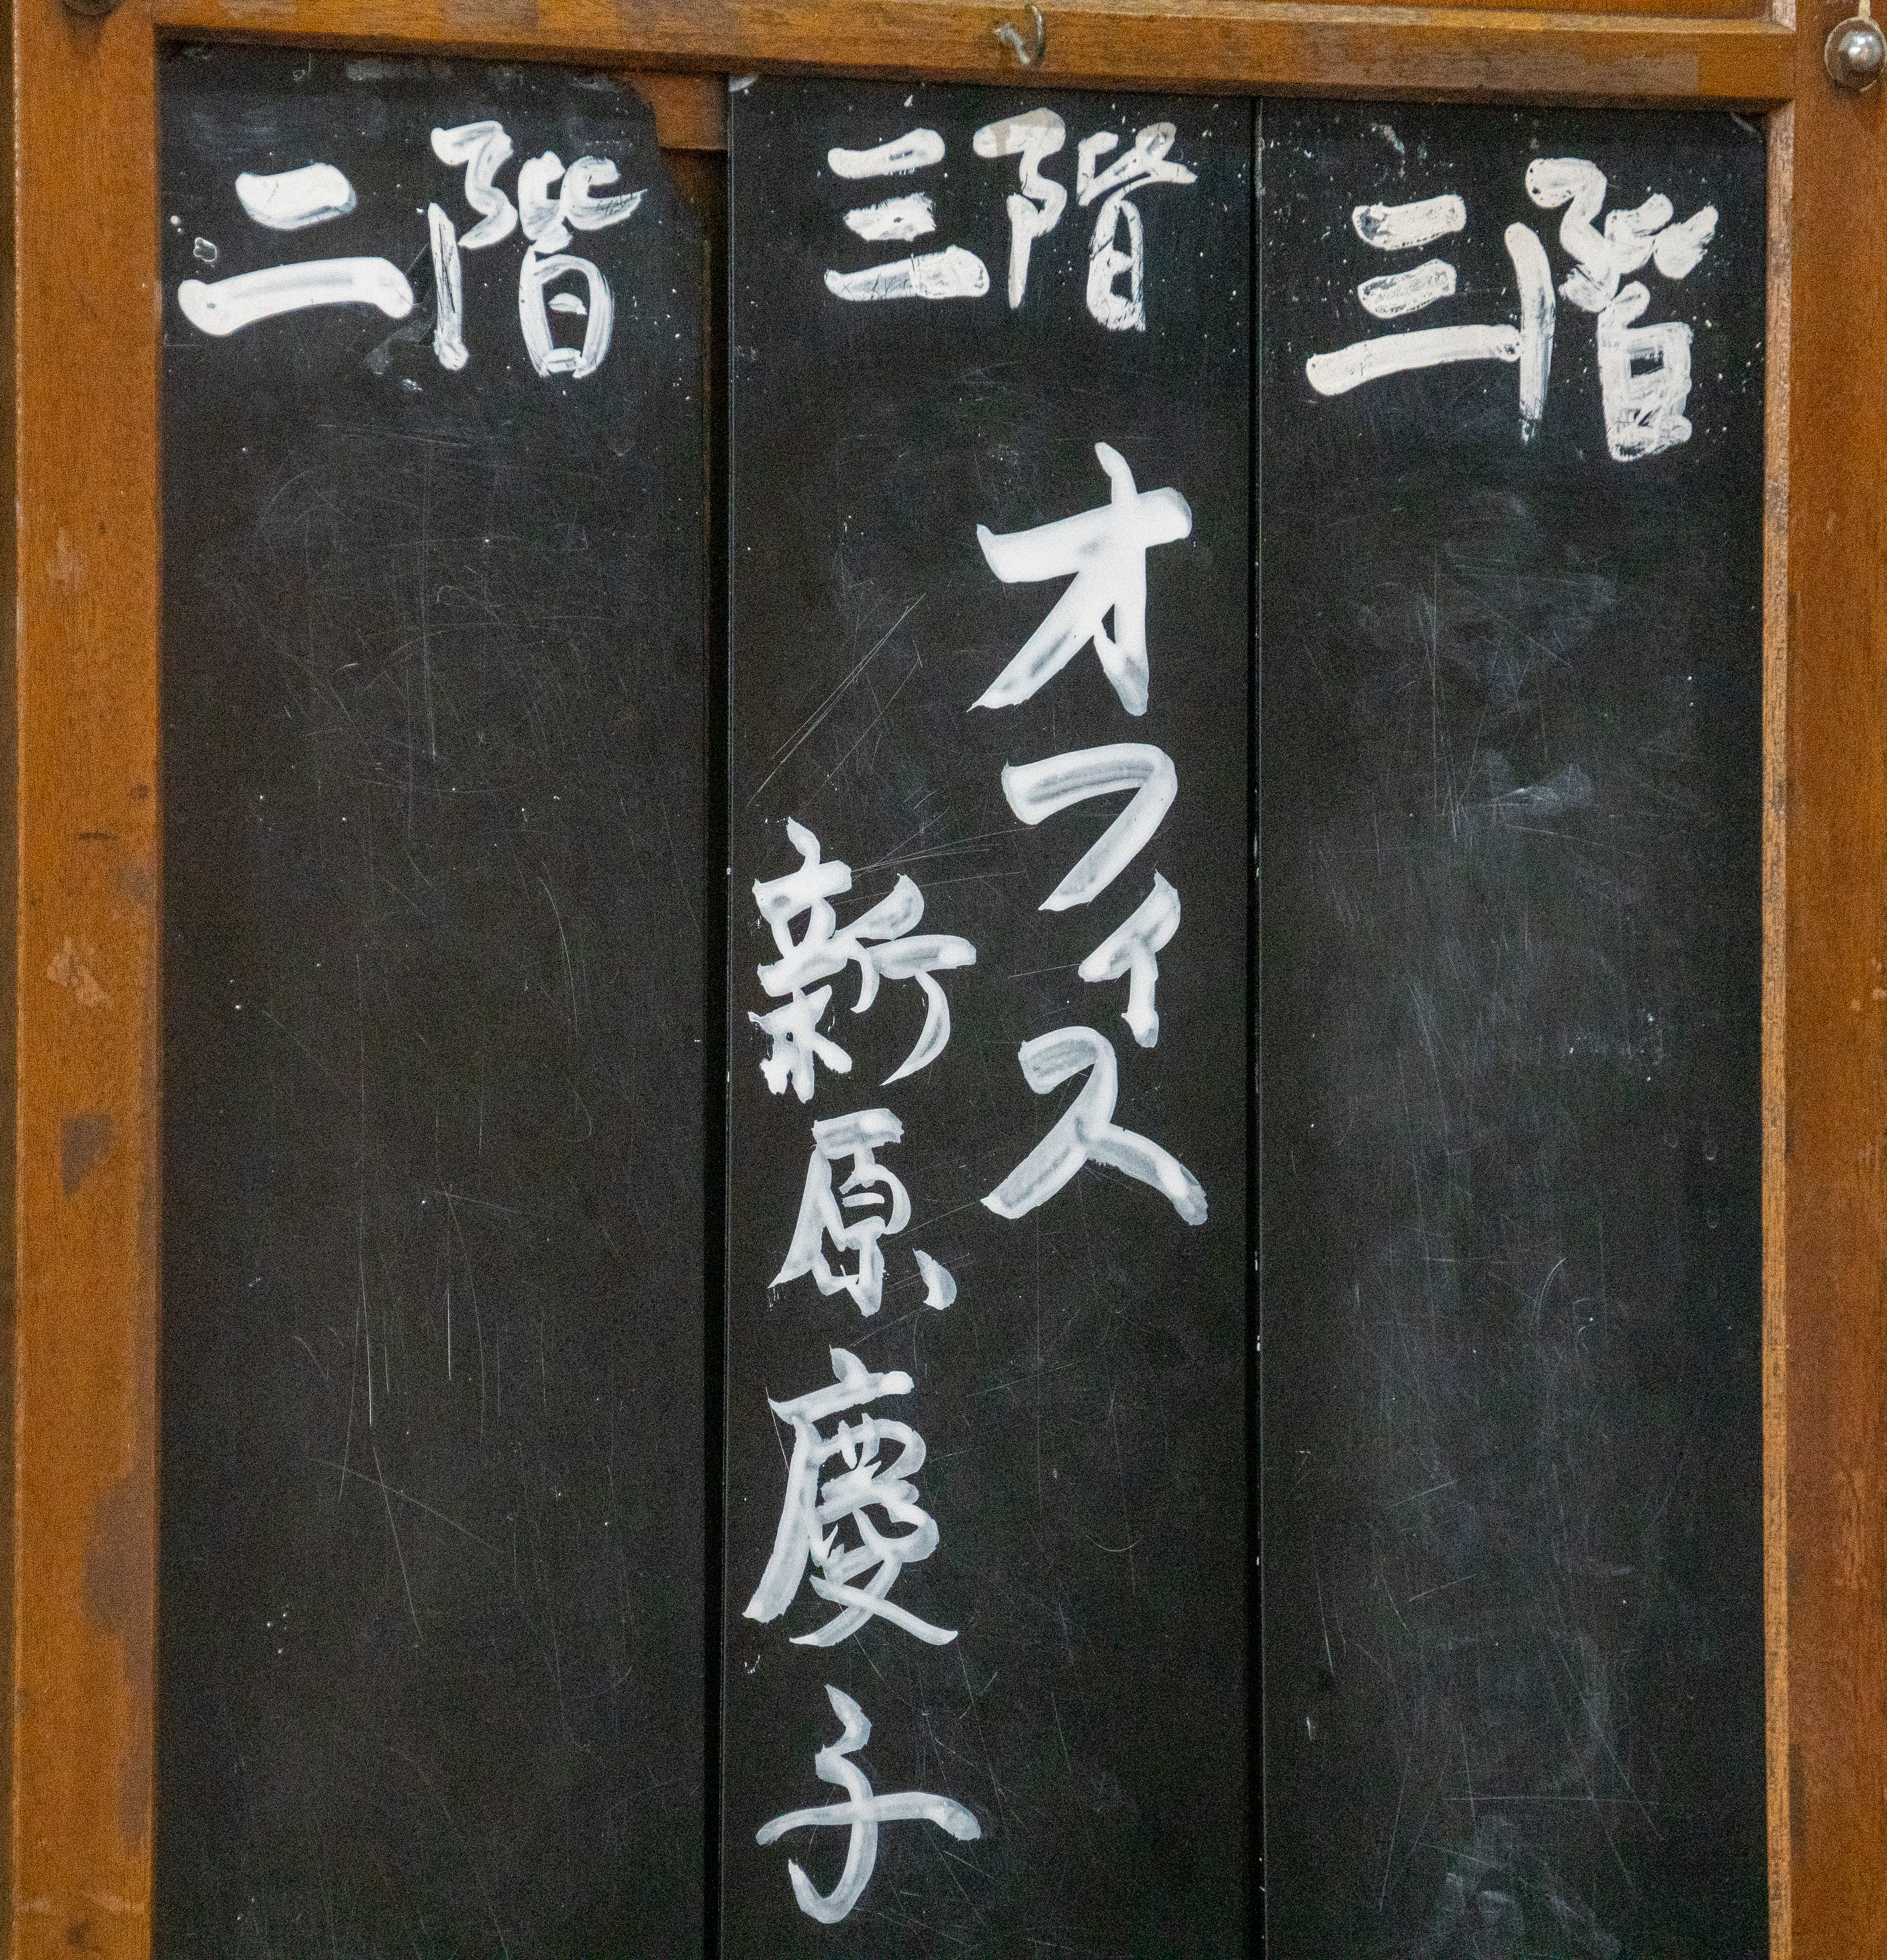 三階
三階
オフィス
新原慶子
二階